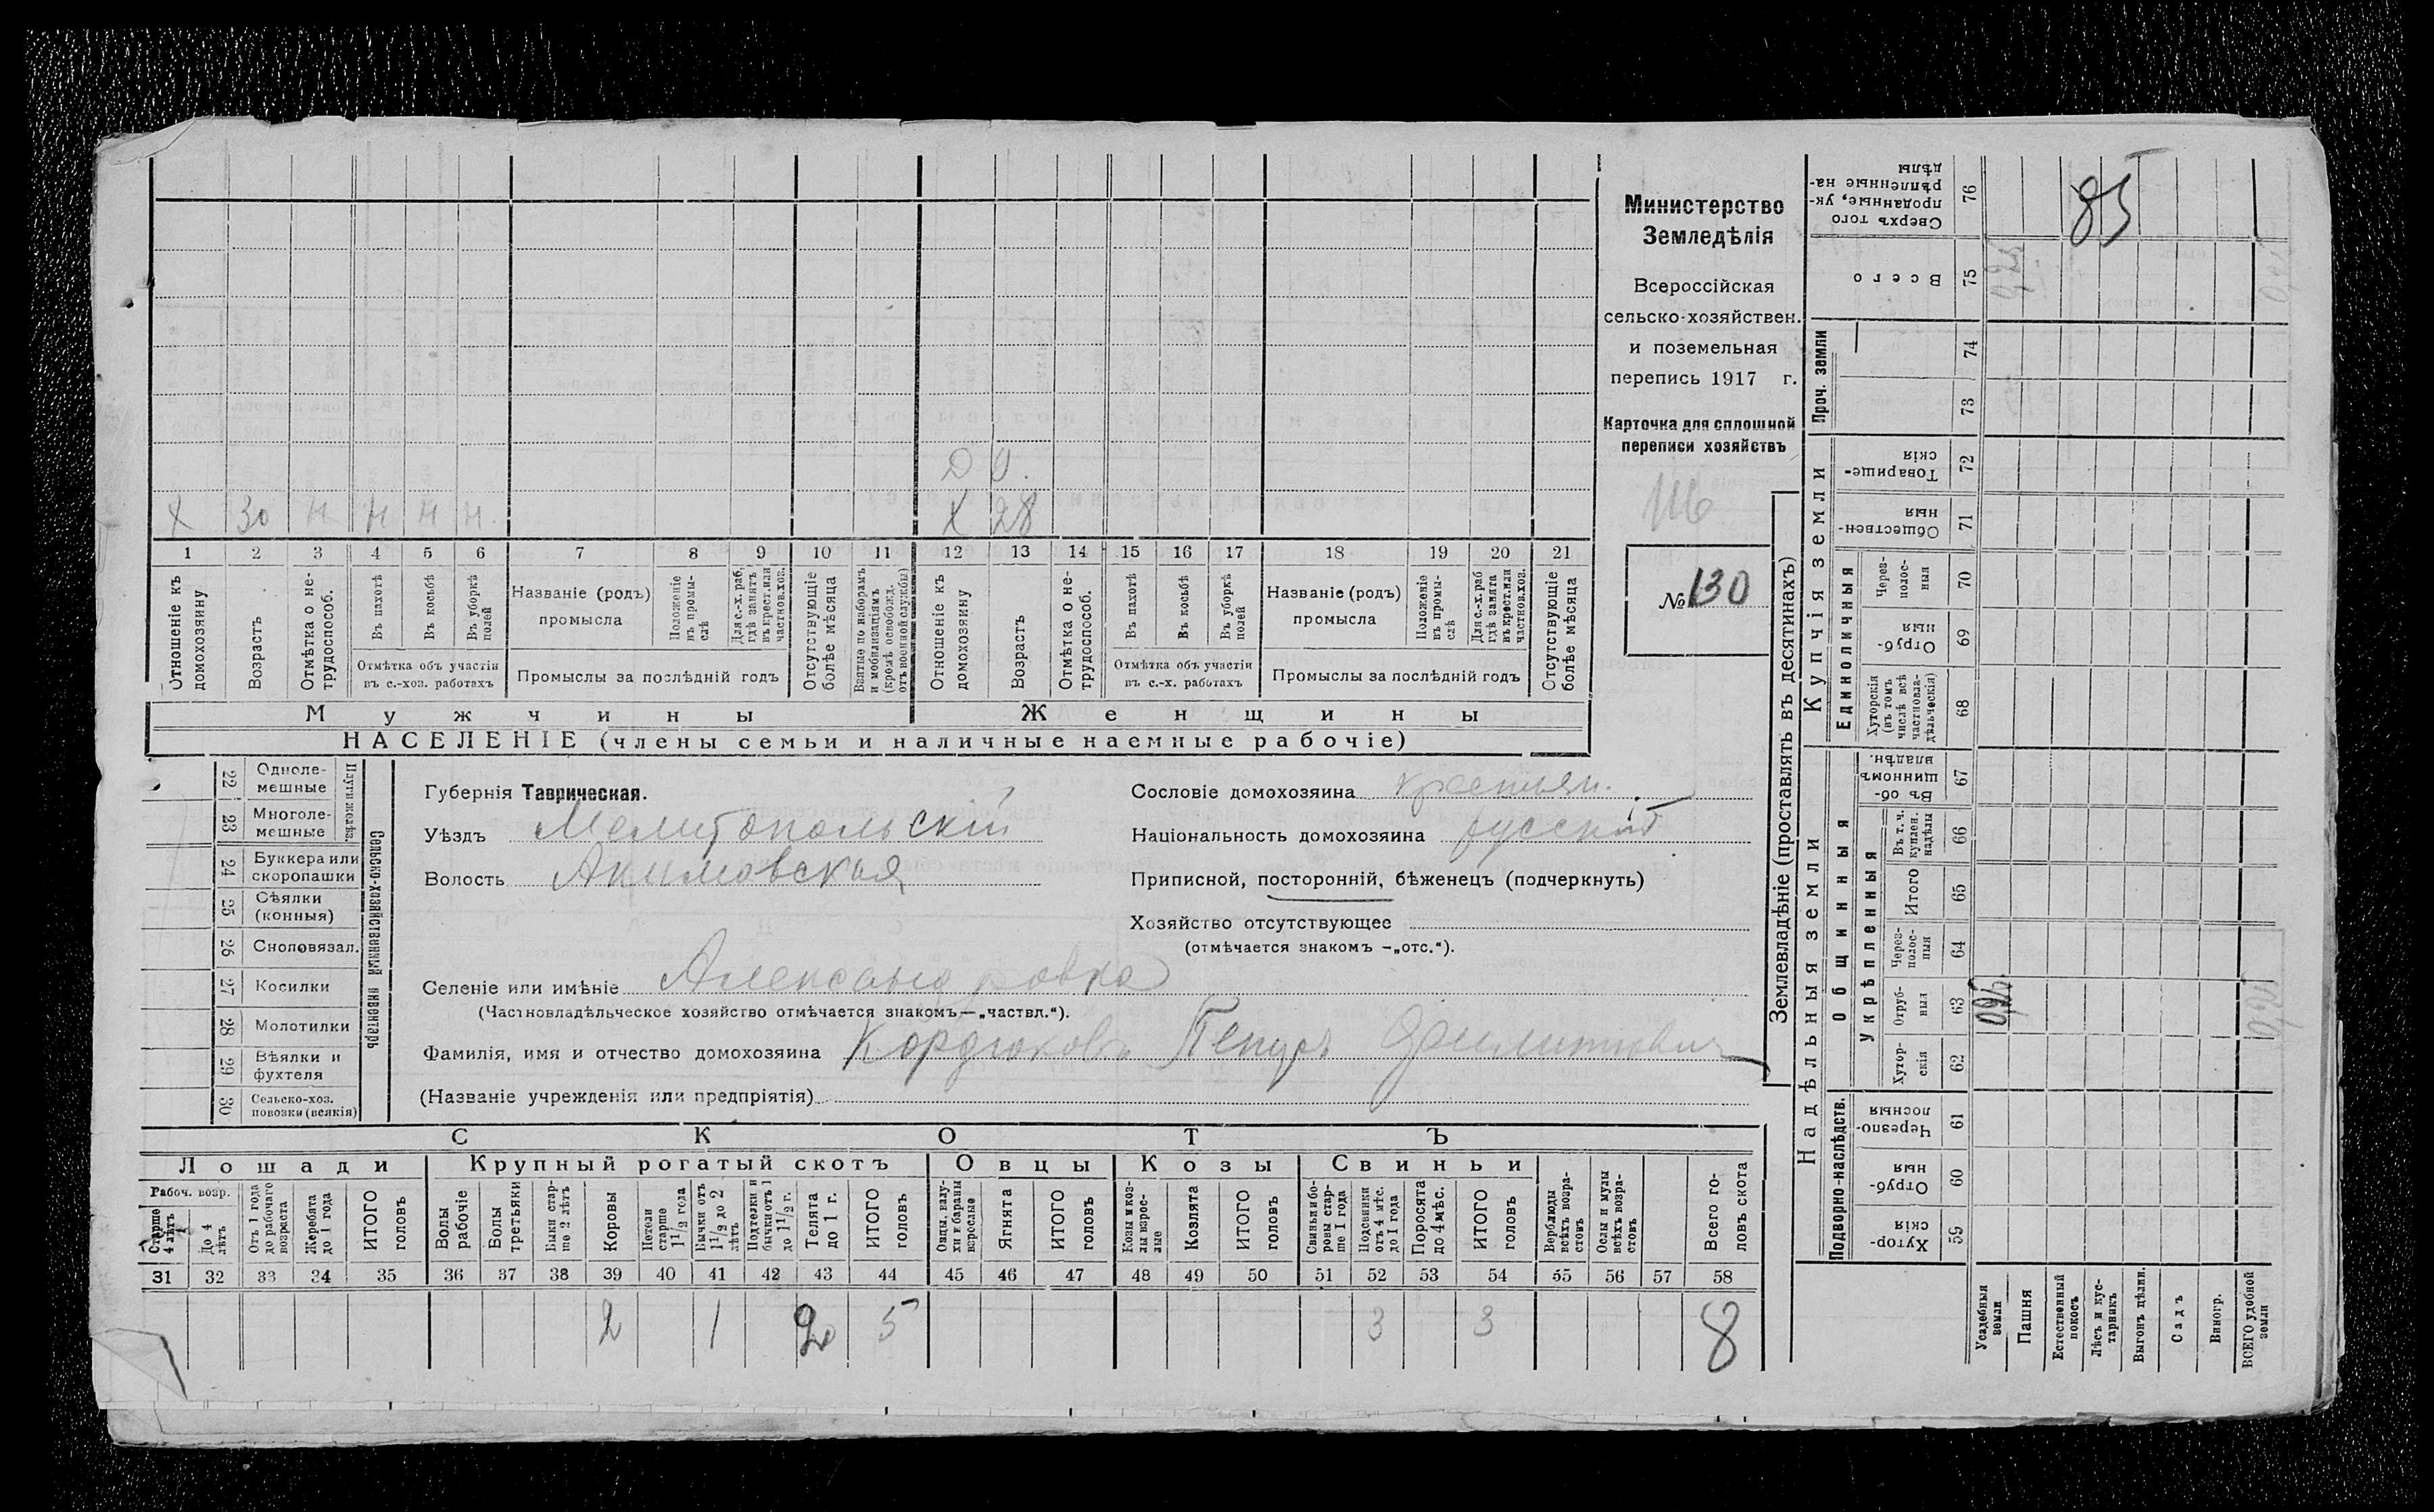 85
Министерство
Земледѣлія
Всероссійская
сельско-хозяйствен.
и поземельная
перепись 1917 г.
Карточка для сплошной
переписи хозяйствъ
№ 130
Д 9.
х 30 н н н н х 28
1 2 3 4 5 6 7 8 9 10 11 12 13 14 15 16 17 18 19 20 21
Отношеніе къ домохозяину
Возрастъ
Отмѣтка о не-трудоспособ.
Въ пахотѣ
Въ косьбѣ
Въ уборкѣ полей
Отмѣтка объ участіи въ с.-хоз. работахъ
Названіе (родъ) промысла
Положеніе въ промы-слѣ
Для с.-х. раб, гдѣ занятъ въ крест. или частнов. хоз.
Промыслы за послѣдній годъ
Отсутствующіе болѣе мѣсяца
Взятые по наборамъ и мобилизаціямъ (кромѣ освобожд. отъ военной службы)
Отношеніе къ домохозяину
Возрастъ
Отмѣтка о не-трудоспособ.
Въ пахотѣ
Въ косьбѣ
Въ уборкѣ полей
Отмѣтка объ участіи въ с.-х. работахъ
Названіе (родъ) промысла
Положеніе въ промы-слѣ
Для с.-х. раб гдѣ занята въ крест. или частнов. хоз.
Промыслы за послѣдній годъ
Отсутствующіе болѣе мѣсяца
Мужчины Женщины
НАСЕЛЕНІЕ (члены семьи и наличные наемные рабочіе)
Сельско-хозяйственный инвентарь
Плуги желѣз.
22 Одноле-мешные
23 Многоле-мешные
24 Буккера или скоропашки
25 Сѣялки (конныя)
26 Сноповязал.
27 Косилки
28 Молотилки
29 Вѣялки и фухтеля
30 Сельско-хоз. повозки (всякія)
Губернія Таврическая.
Уѣздъ Мелитопольскій
Волость Акимовская
Сословіе домохозяина крестьян.
Національность домохозяина русскій
Приписной, посторонній, бѣженецъ (подчеркнуть)
Хозяйство отсутствующее
(отмѣчается знакомъ –„отс.“).
Селеніе или имѣніе Александровка
(Частновладѣльческое хозяйство отмѣчается знакомъ—„частвл.“).
Фамилія, имя и отчество домохозяина Кордюковъ Петръ
(Названіе учрежденія или предпріятія)
СКОТЪ
Лошади Крупный рогатый скотъ Овцы Козы Свиньи
Рабоч. возр.
Старше 4 лѣтъ
До 4 лѣтъ
Отъ 1 года до рабочаго возраста
Жеребята до 1 года
ИТОГО головъ
Волы рабочіе
Волы третьяки
Быки стар-ше 2 лѣтъ
Коровы
Нетели старше 1½ года
Бычки отъ 1½ до 2 лѣтъ
Подтелки и бычки отъ 1 до 1½ г.
Телята до 1 г.
ИТОГО головъ
Овцы, валу-хи и бараны взрослые
Ягнята
ИТОГО головъ
Козы и коз-лы взрос-лые
Козлята
ИТОГО головъ
Свиньи и бо-ровы стар-ше 1 года
Подсвинки отъ 4 мѣс. до 1 года
Поросята до 4 мѣс.
ИТОГО головъ
Верблюды всѣхъ возра-стовъ
Ослы и мулы всѣхъ возра-стовъ
Всего го-ловъ скота
31 32 33 34 35 36 37 38 39 40 41 42 43 44 45 46 47 48 49 50 51 52 53 54 55 56 57 58
2 1 2 5 3 3 8
Землевладѣніе (проставлять въ десятинахъ)
Надѣльныя земли
Купчія земли
Проч. земли
Общинныя
Укрѣпленныя
Единоличныя
Подворно-наслѣдств.
Сверхъ того проданные, ук-рѣпленные на-дѣлы 76
Всего 75
74
73
Товарище-скія 72
Обществен-ныя 71
Через-полос-ныя 70
Отруб-ныя 69
Хуторскія (въ томъ числѣ всѣ частновла-дѣльческія) 68
Въ об-щинномъ владѣн. 67
Въ т. ч. куплен. надѣлы 66
Итого 65
Через-полос-ныя 64
Отруб-ныя 63
Хутор-скія 62
Черезпо-лосныя 61
Отруб-ныя 60
Хутор-скія 59
Усадебныя земли
Пашня
Естественный покосъ
Лѣсъ и кус-тарникъ
Выгонъ цѣлин.
Садъ
Виногр.
ВСЕГО удобной земли